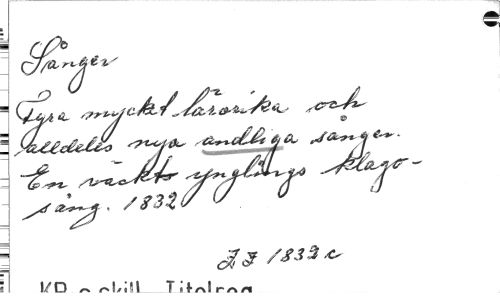 Sånger
Fyra mycket lärorika och
alldeles nya andliga sånger.
En väckt ynglings klago-
sång. 1832
1832 c
KB e skill Titelreg